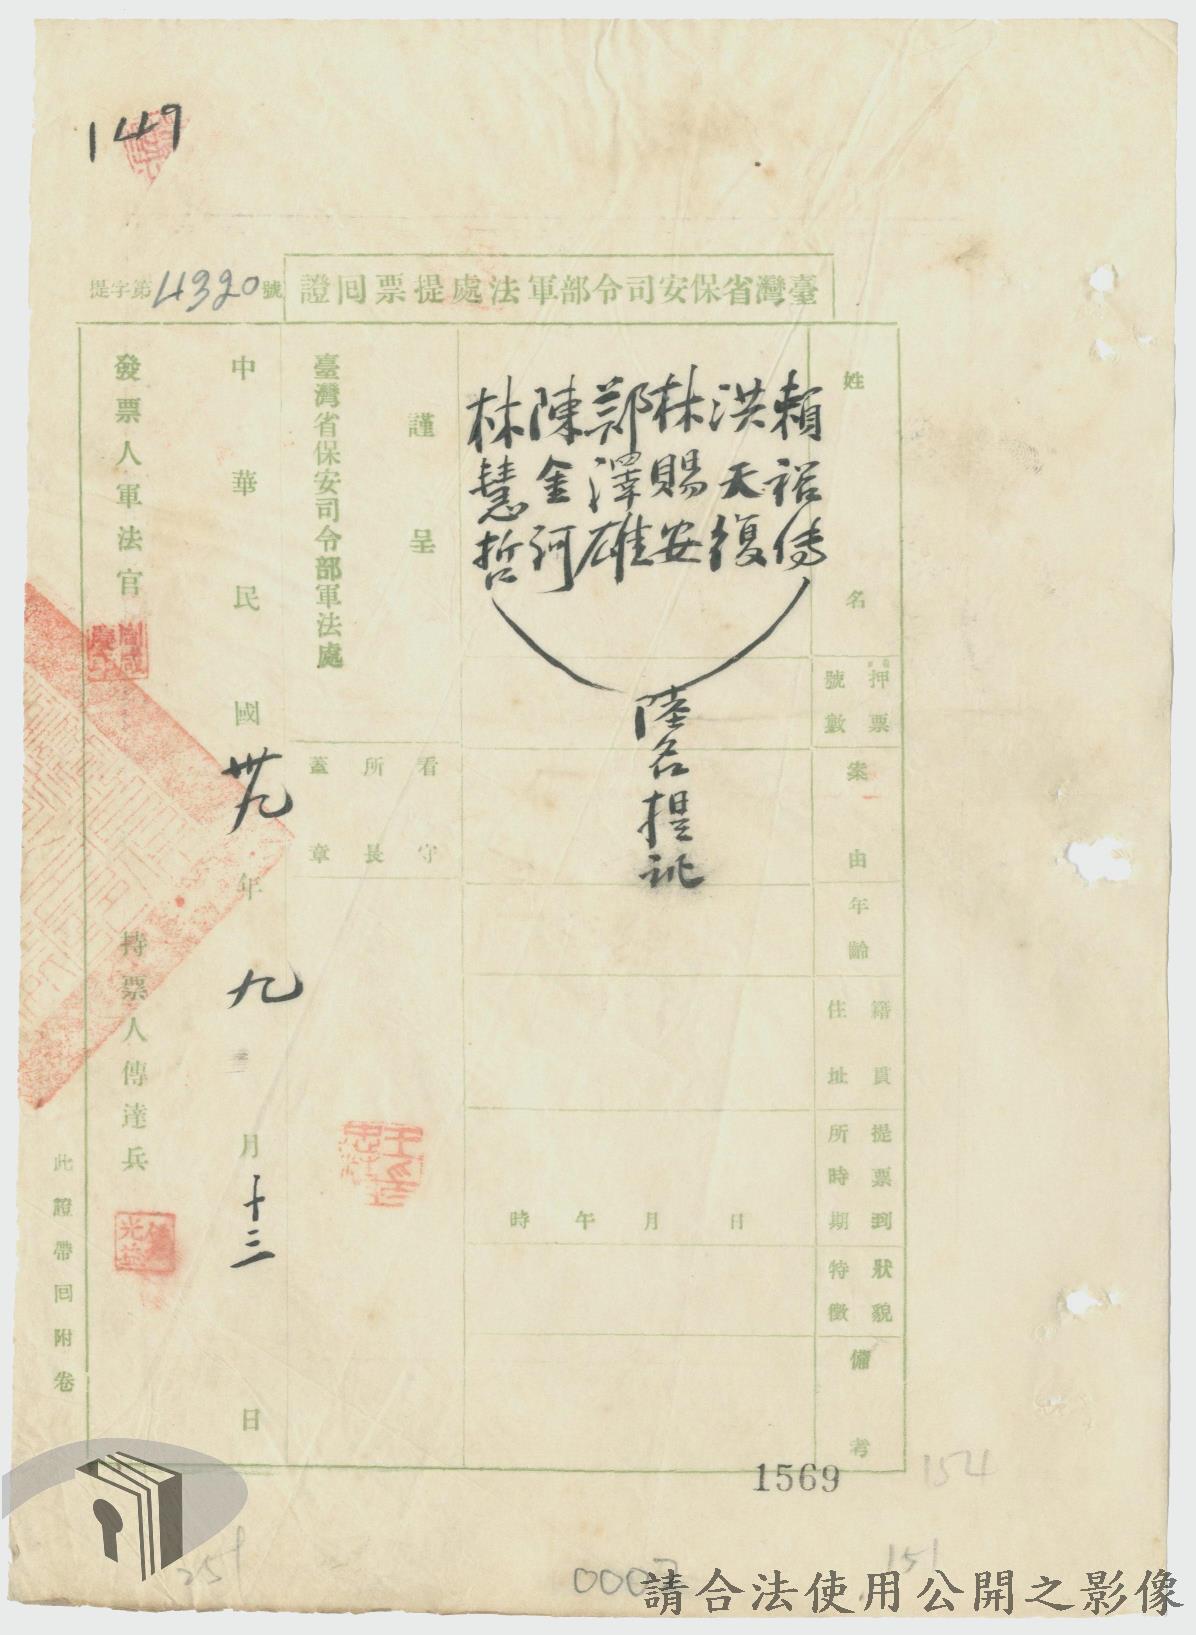 149
臺灣省保安司令部軍法處提票回證
提字第4320號
姓名
賴裕傳
洪天復
林賜安
鄭澤雄
陳金河
林慧哲
陸名提訊
押票號數
案由
年齡
籍貫住址
提票到所時期
日月午時
狀貌特徵
備考
謹呈
臺灣省保安司令部軍法處
看守所長蓋章
中華民國卅九年九月十三日
發票人軍法官
持票人傳達兵
此證帶回附卷
1569
154
151
251
請合法使用公開之影像